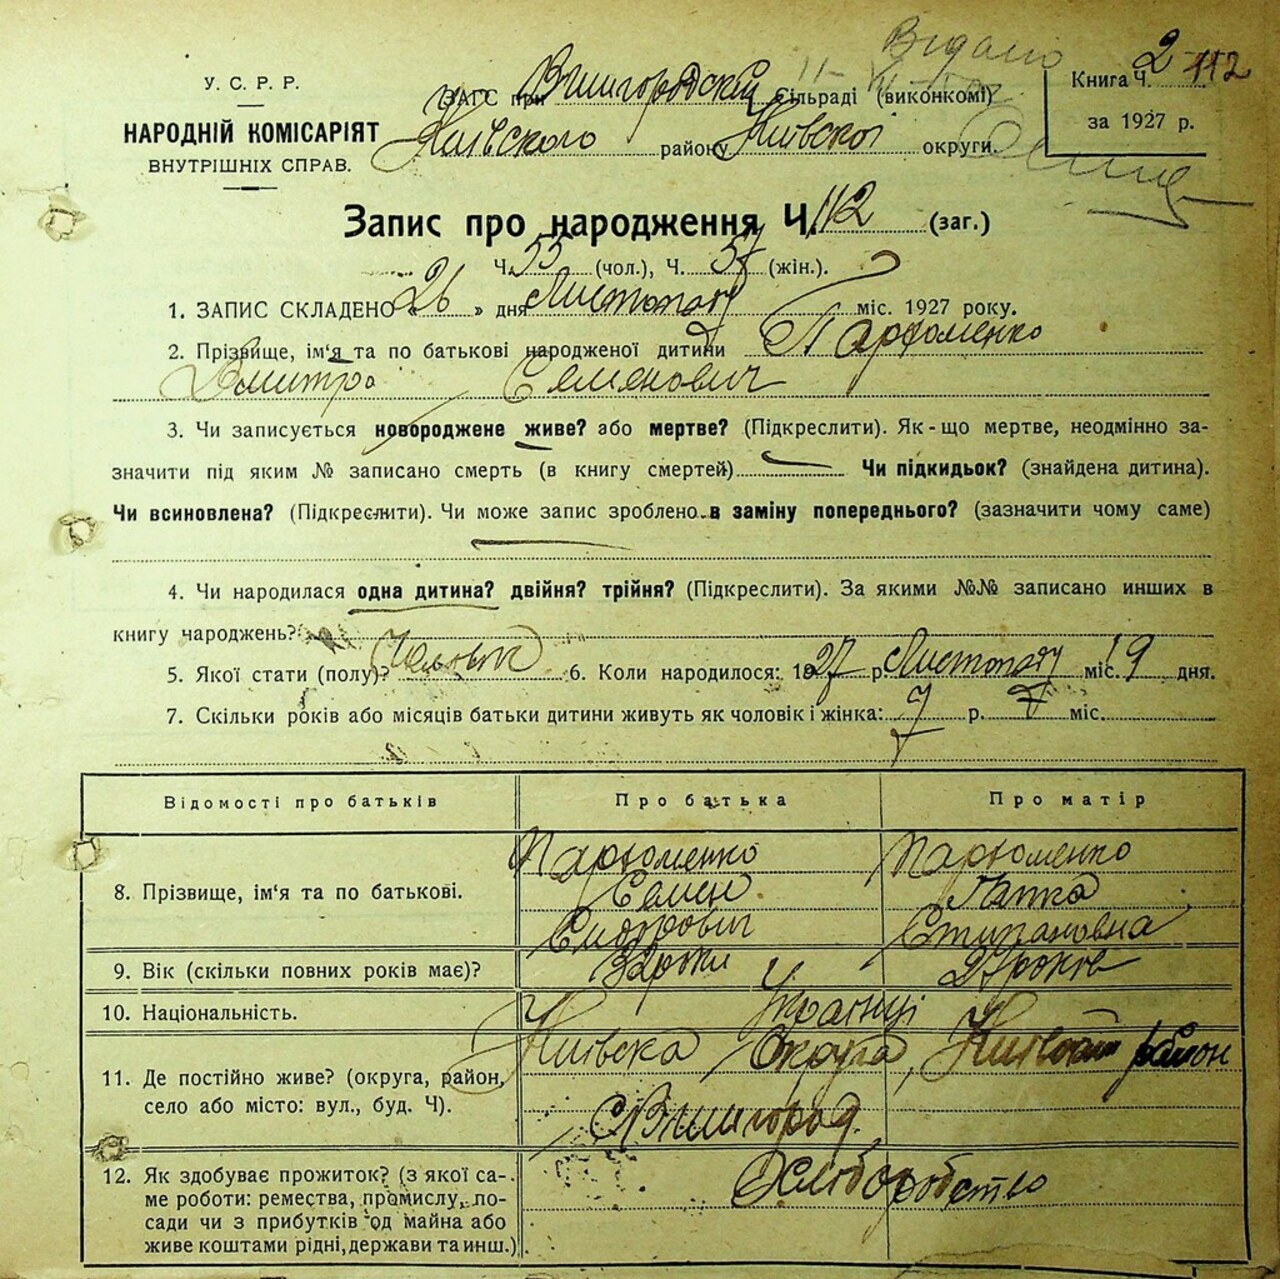 Видано
У. С. Р. Р.
НАРОДНІЙ КОМІСАРІЯТ
ВНУТРІШНІХ СПРАВ.
ЗАГС при Вишгородскій Сільраді (виконкомі)
Київского району Київскої округи.
Книга Ч. 2 112
за 1927 р.
Запис про народження Ч. 112 (заг.)
Ч. 55 (чол.), Ч. 57 (жін.).
1. ЗАПИС СКЛАДЕНО « 26 » дня Листопаду міс. 1927 року.
2. Прізвище, ім'я та по батькові народженої дитини Пархоменко
Дмитро Семенович
3. Чи записується новороджене живе? або мертве? (Підкреслити). Як-що мертве, неодмінно за-
значити під яким № записано смерть (в книгу смертей) Чи підкидьок? (знайдена дитина).
Чи всиновлена? (Підкреслити). Чи може запис зроблено в заміну попереднього? (зазначити чому саме)
4. Чи народилася одна дитина? двійня? трійня? (Підкреслити). За якими №№ записано инших в
книгу чароджень?
5. Якої стати (полу)? 6. Коли народилося: 1927 р. Листопаду міс. 19 дня.
7. Скільки років або місяців батьки дитини живуть як чоловік і жінка: 7 р. міс.
Відомості про батьків Про батька Про матір
8. Прізвище, ім'я та по батькові.
Пархоменко Пархоменко
Семен Гапка
Сидорович Степановна
9. Вік (скільки повних років має)? 32 роки
10. Національність. Українці
11. Де постійно живе? (округа, район,
село або місто: вул., буд. Ч).
Київска Округа, Київский район
с. Вишгород.
12. Як здобуває прожиток? (з якої са-
ме роботи: ремества, промислу, по-
сади чи з прибутків од майна або
живе коштами рідні, держави та инш.)
Хлібороб­ство